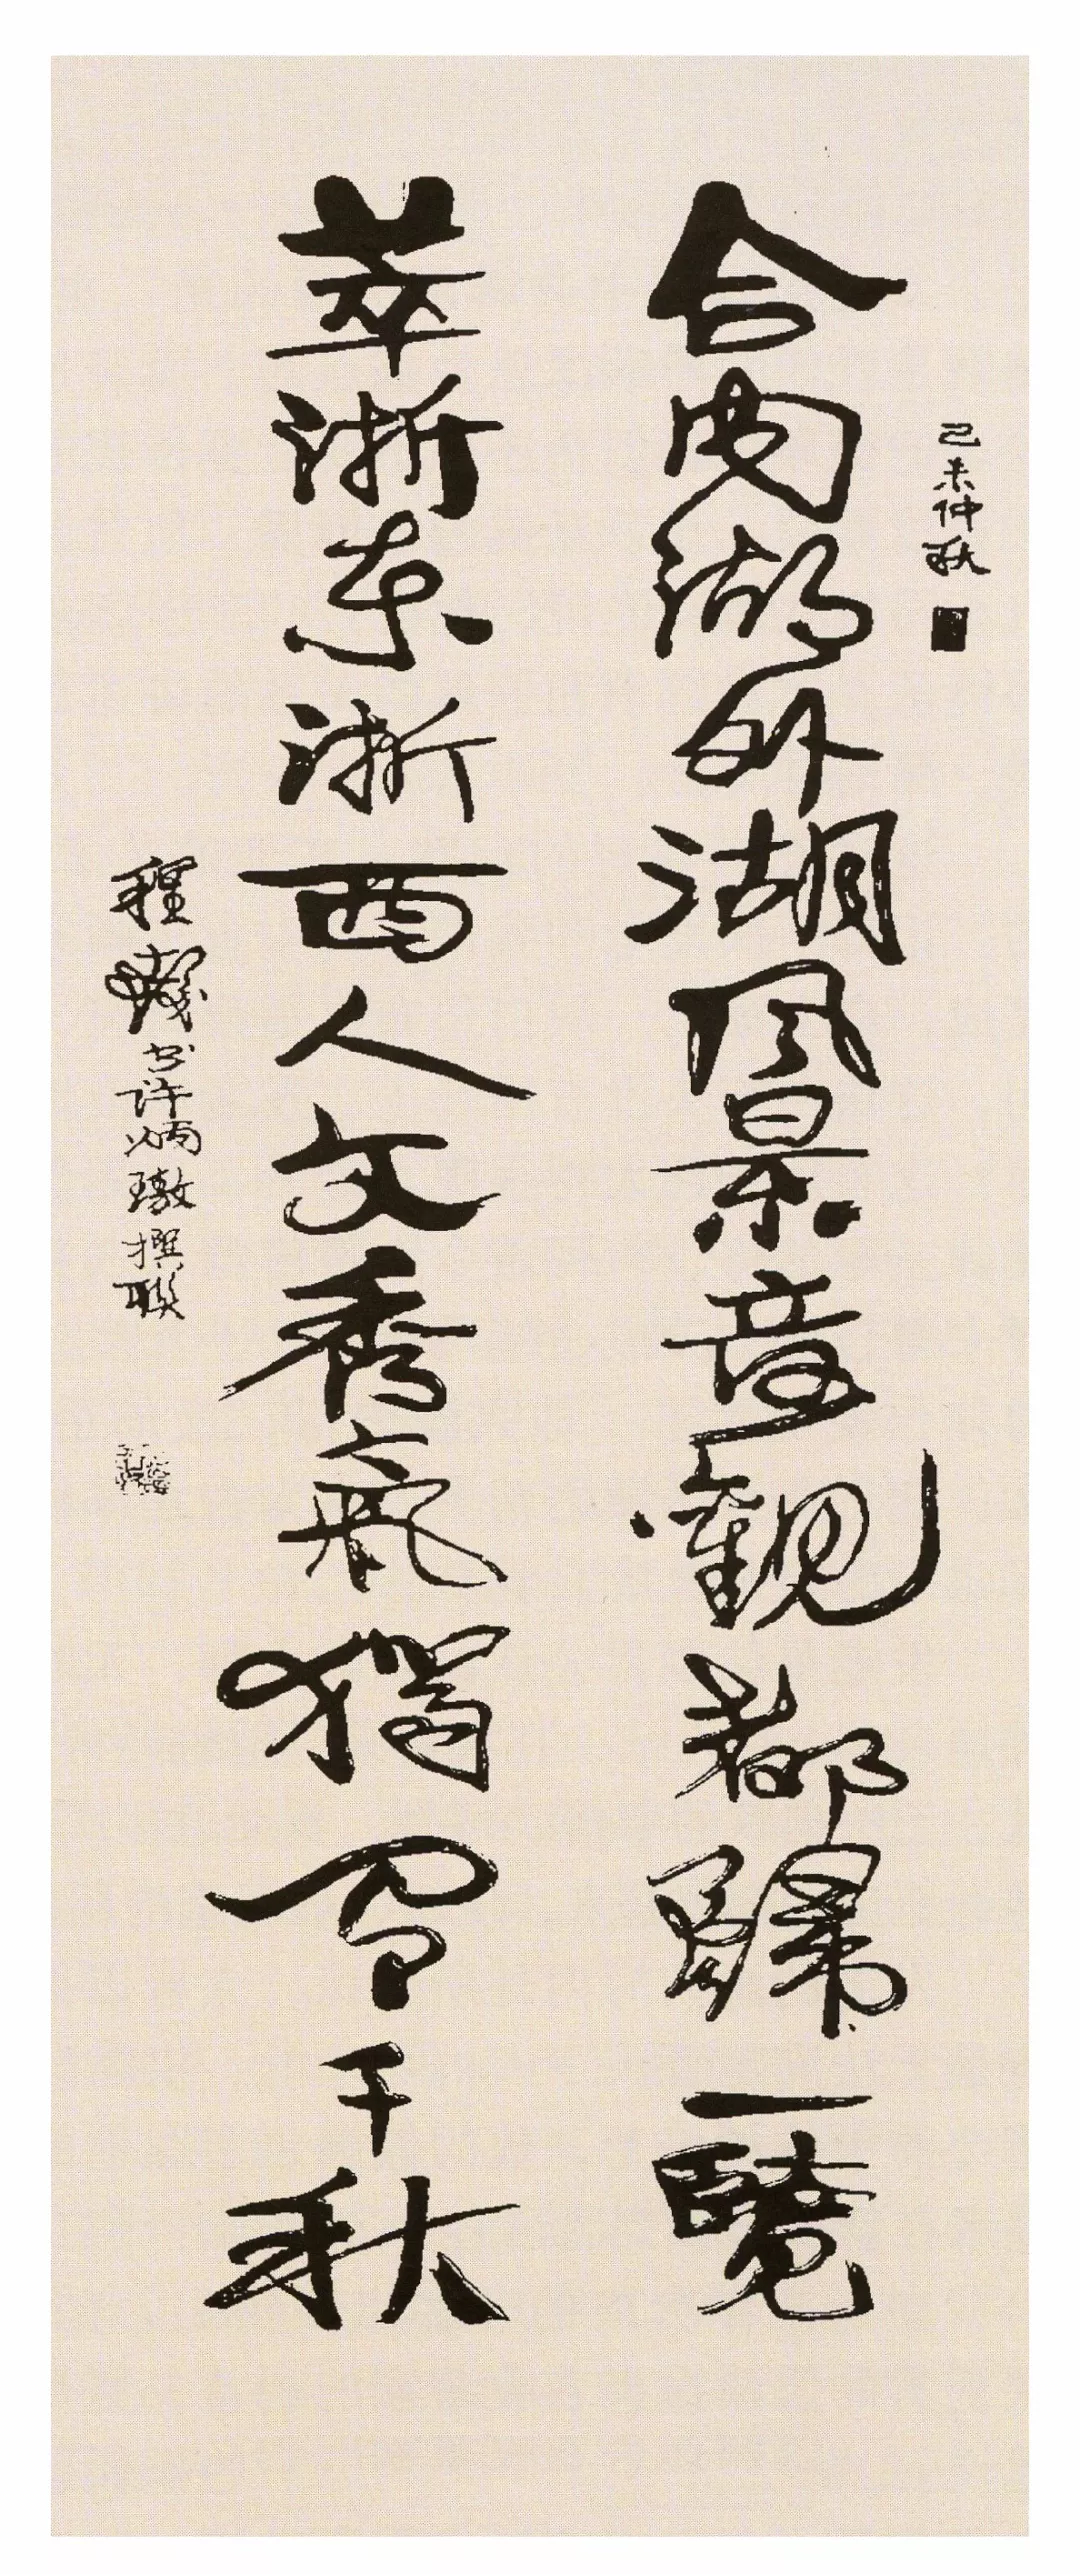 己未仲秋
合内湖外湖風景奇觀都歸一覽
萃浙東浙西人文秀氣獨有千秋
程㦤書許炳璈撰聯